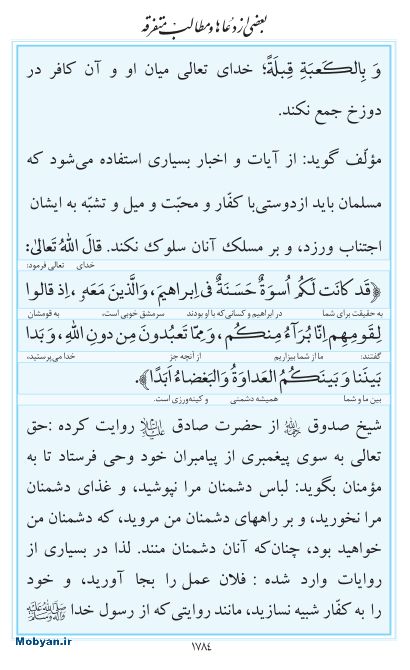 بعضی از دعاها و مطالب متفرقه
وَ بِالكَعبَةِ قِبلَةً؛ خدای تعالی میان او و آن کافر در
دوزخ جمع نکند.
مؤلّف گوید: از آیات و اخبار بسیاری استفاده می‌شود که
مسلمان باید ازدوستی‌با کفّار و محبّت و میل و تشبّه به ایشان
اجتناب ورزد، و بر مسلک آنان سلوک نکند. قالَ اللهُ تَعالیٰ:
خدای تعالی فرمود:
﴿قَد كانَت لَكُم اُسوَةٌ حَسَنَةٌ فی اِبراهیمَ، وَالَّذینَ مَعَهُ، اِذ قالوا
به حقیقت برای شما سرمشق خوبی است، در ابراهیم و کسانی‌که با او بودند به قومشان
لِقَومِهِم اِنّا بُرَآءُ مِنكُم، وَمِمّا تَعبُدونَ مِن دونِ اللهِ، وَبَدا
گفتند: ما از شما بیزاریم از آنچه جز خدا می‌پرستید،
بَینَنا وَ بَینَكُمُ العَداوَةُ وَالبَغضاءُ اَبَدًا﴾.
بین ما و شما همیشه دشمنی و کینه‌ورزی است.
شیخ صدوق رحمه‌الله از حضرت صادق علیه‌السلام روایت کرده :حق
تعالی به سوی پیغمبری از پیامبران خود وحی فرستاد تا به
مؤمنان بگوید: لباس دشمنان مرا نپوشید، و غذای دشمنان
مرا نخورید، و بر راههای دشمنان من مروید، که دشمنان من
خواهید بود، چنان‌که آنان دشمنان منند. لذا در بسیاری از
روایات وارد شده : فلان عمل را بجا آورید، و خود
را به کفّار شبیه نسازید، مانند روایتی‌که از رسول خدا ﷺ
Mobyan.ir
۱۷۸۴